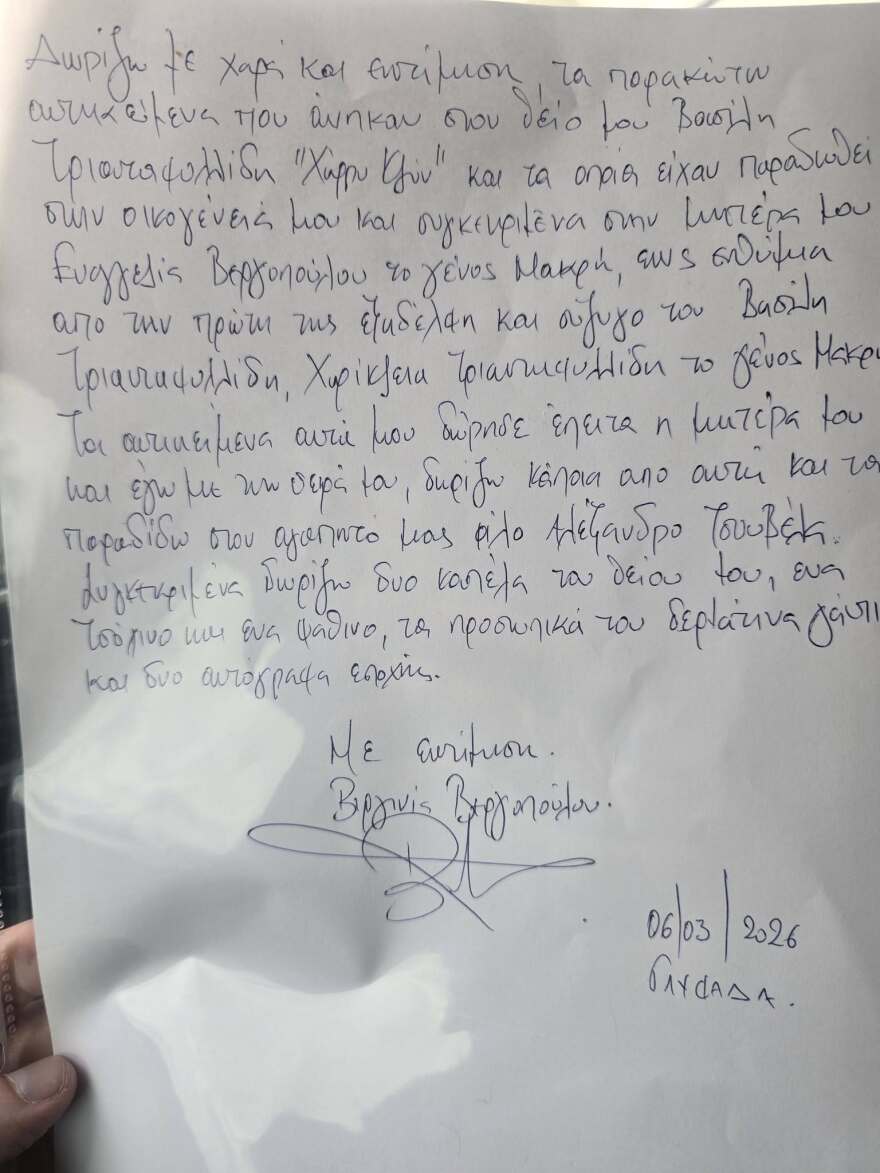 Δωρίζω με χαρά και εκτίμηση, τα παρακάτω
αντικείμενα που άνηκαν στον θείο μου Βασίλη
Τριανταφυλλίδη "Χάρρυ Κλύν" και τα οποία είχαν παραδωθεί
στην οικογένειά μου και συγκεκριμένα στην μητέρα μου
Ευαγγελία Βεργοπούλου το γένος Μακρή, ως ενθύμια
απο την πρώτη της εξαδέλφη και σύζυγο του Βασίλη
Τριανταφυλλίδη, Χαρίκλεια Τριανταφυλλίδη το γένος Μακρή
Τα αντικείμενα αυτά μου δώρησε έπειτα η μητέρα μου
και εγω με την σειρά μου, δωρίζω κάποια απο αυτά και τα
παραδίδω στον αγαπητό μας φίλο Αλέξανδρο Τσουβέλα.
Συγκεκριμένα δωρίζω δυο καπέλα του θείου μου, ενα
τσόχινο και ενα ψάθινο, τα προσωπικά του δερμάτινα γάντι
και δυο αυτόγραφα εποχής.
Με εκτίμηση.
Βιργινία Βεργοπούλου.
06/03/2026
ΓΛΥΦΑΔΑ.